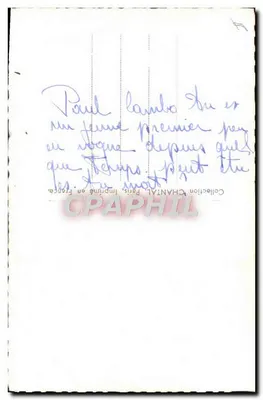 Paul Cambo tu es
un jeune premier peu
en vogue depuis quel
que temps peut être
es tu mort
Collection CHANTAL, Paris, Imprimé en France
CPAPHIL